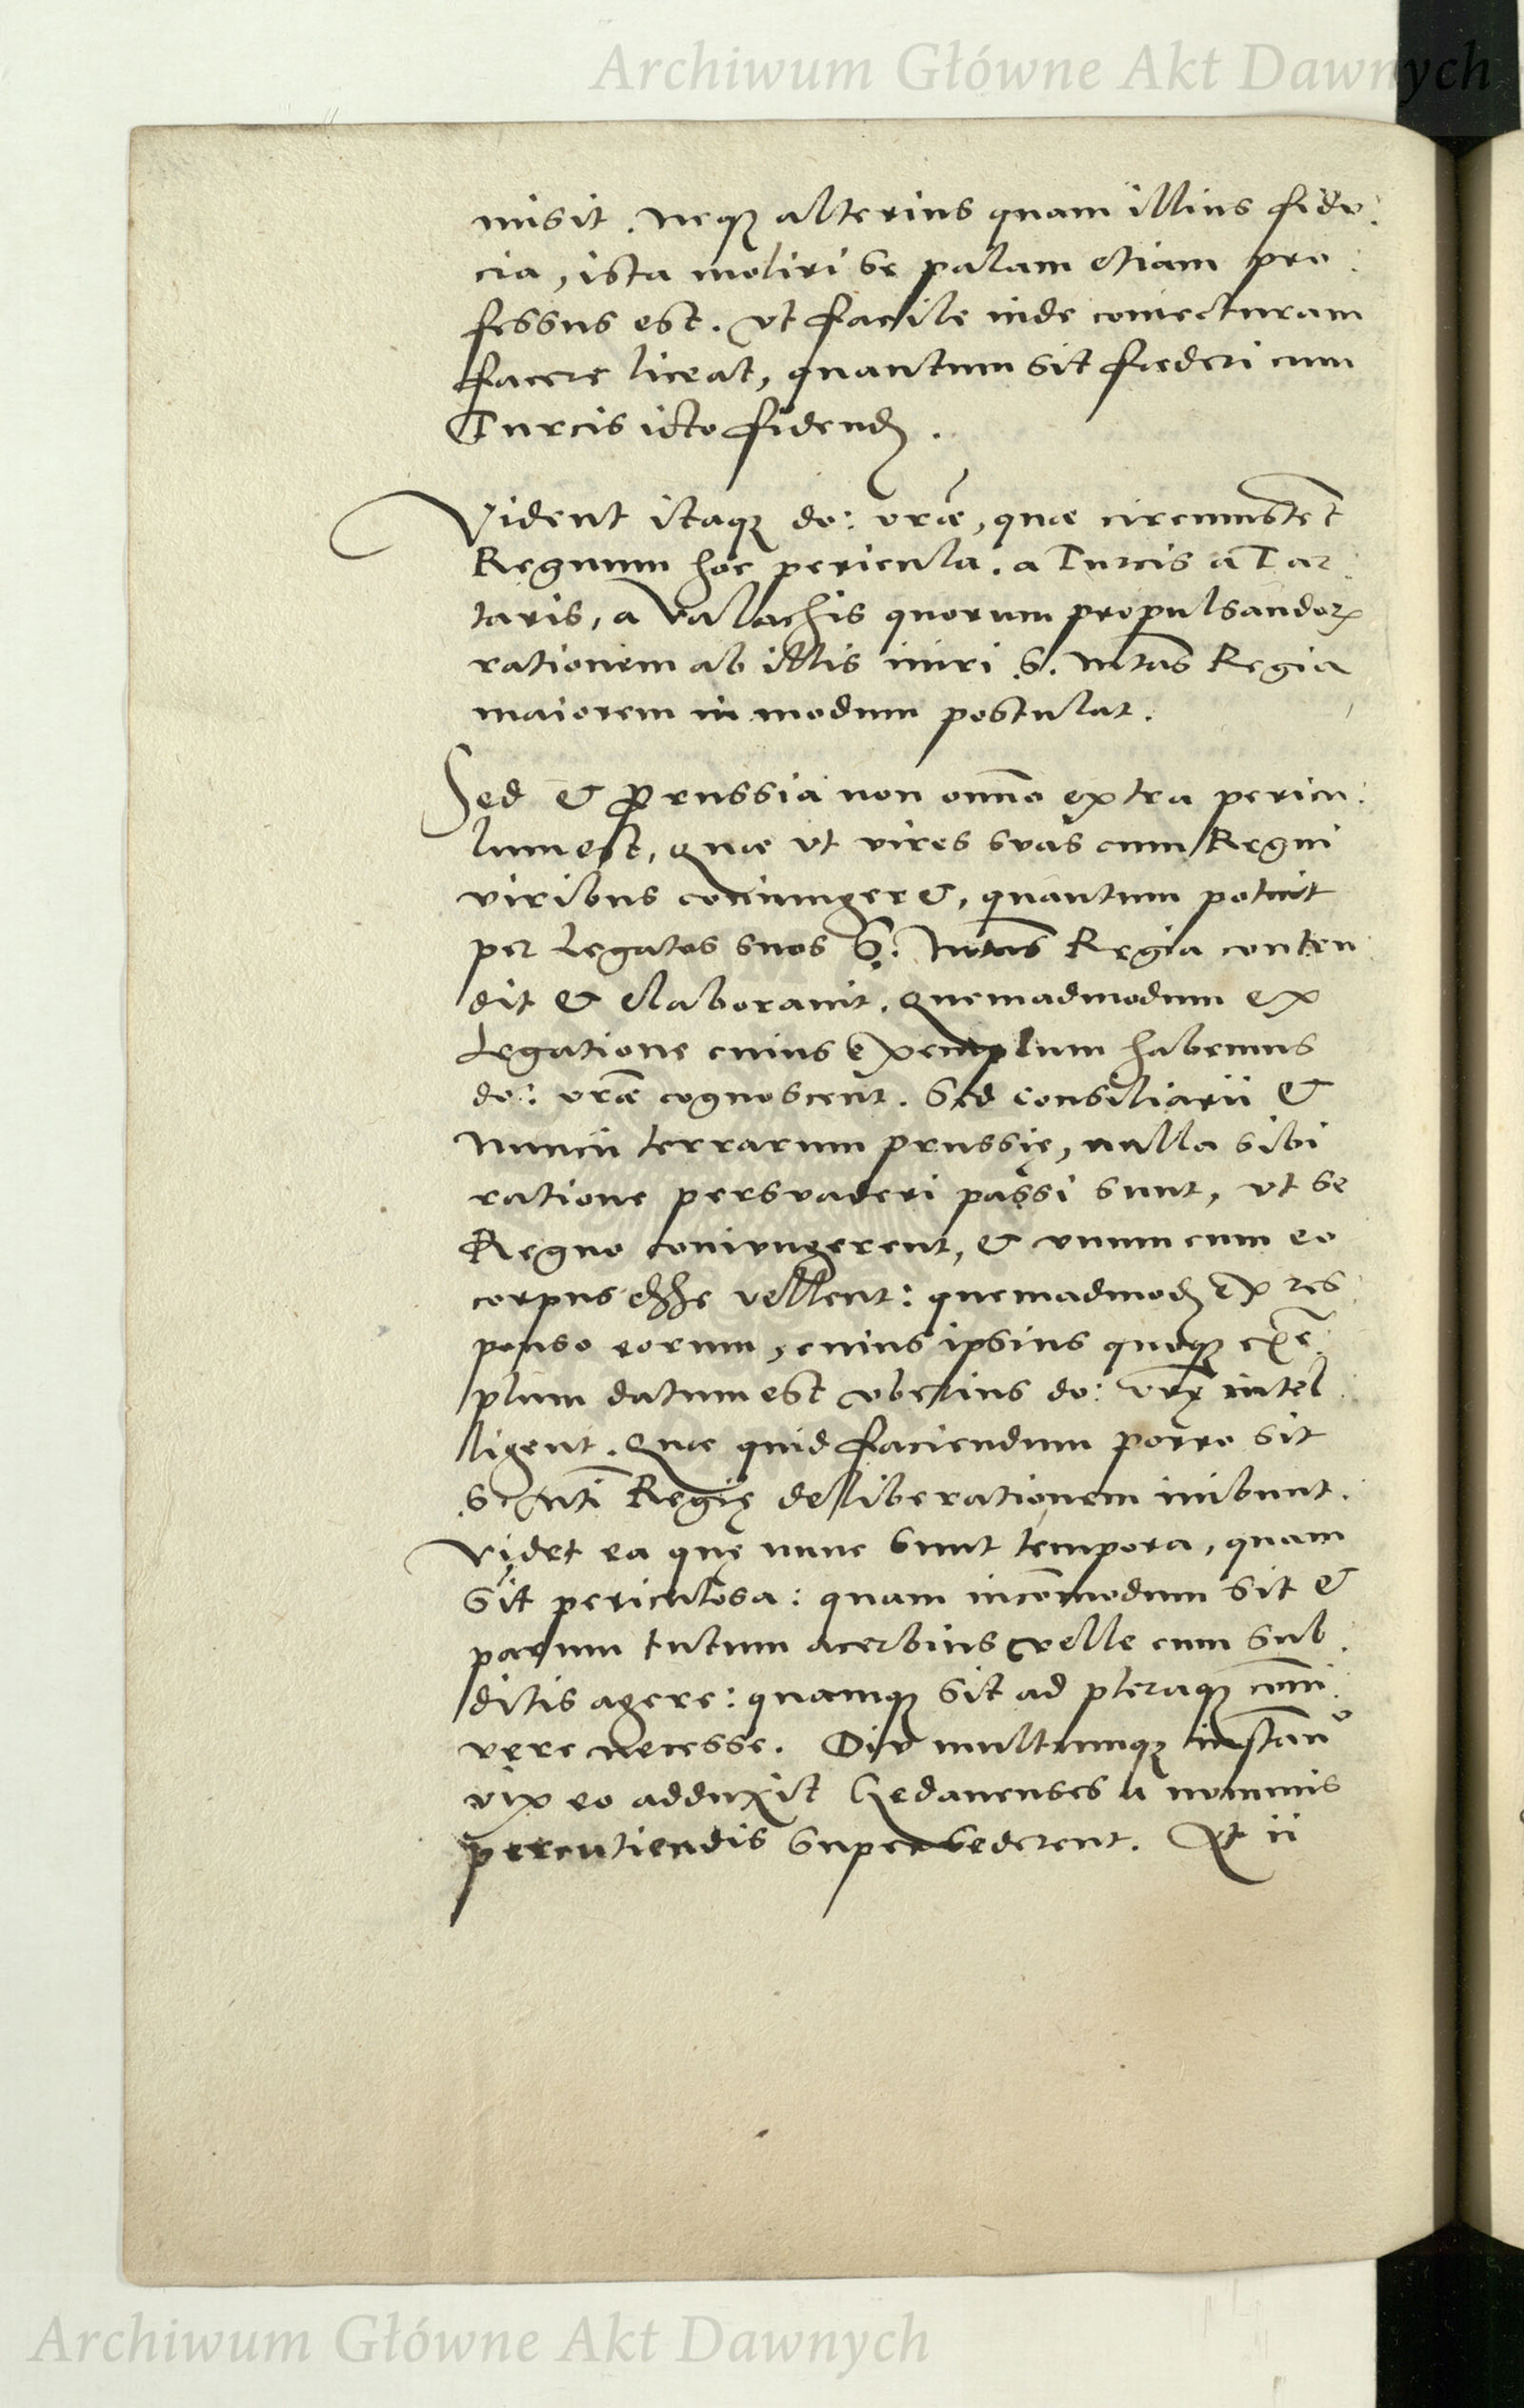 Archiwum Główne Akt Dawnych
misit. neqȝ alterius quam illius fidu:
cia, ista moliri se palam etiam pro:
fessus est. vt facile inde coniecturam
facere liceat, quantum sit fœderi cum
Turcis icto fidend̃.
Vident itaqȝ do: vræ, quæ circumstẽt
Regnum hoc pericula. a Turcis a Tar:
taris, a Valachis quorum propulsandorꝝ
rationem ab illis iniri S. Mtas Regia
maiorem in modum postulat.
Sed & Prussia non omno extra pericu:
lum est, quæ vt vires suas cum Regni
viribus coniungeret, quantum potuit
per Legatos suos S. Mtas Regia conten:
dit & elaborauit. quemadmodum ex
Legatione cuius exemplum habemus
do: vræ cognoscent. Sed consiliarii &
nuncii terrarum prussię, nulla sibi
ratione persvaderi passi sunt, vt se
Regno coniungerent, & vnum cum eo
corpus esse vellent: quemadmod̃ ex res:
ponso eorum, cuius ipsius quoqȝ exẽ:
plum datum est vberius do: vrę intel:
ligent. Quæ quid faciendum porro sit
S. Mti Regię deliberationem inibunt.
Videt ea quę nunc sunt tempora, quam
sit periculosa: quam incõmodum sit &
parum tutum acerbius velle cum sub:
ditis agere: quamqȝ sit ad pleraqȝ cõni:
vere necesse. Diu multumqȝ instanᵒ
vix eo adduxit Gedanenses a nummis
percutiendis supersederent. At ii
Archiwum Główne Akt Dawnych